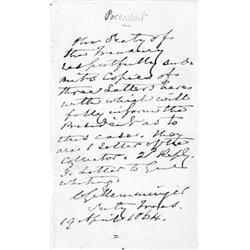 President
The Secty of
the Treasury
respectfully sub
mits Copies of
three Letters here
with which will
fully inform the
President as to
this case. They
are 1 Letter of the
Collector. 2d Reply.
3. Letter to Genl
Whiting.
C G Memminger
Secty Treas.
19 April 1864.